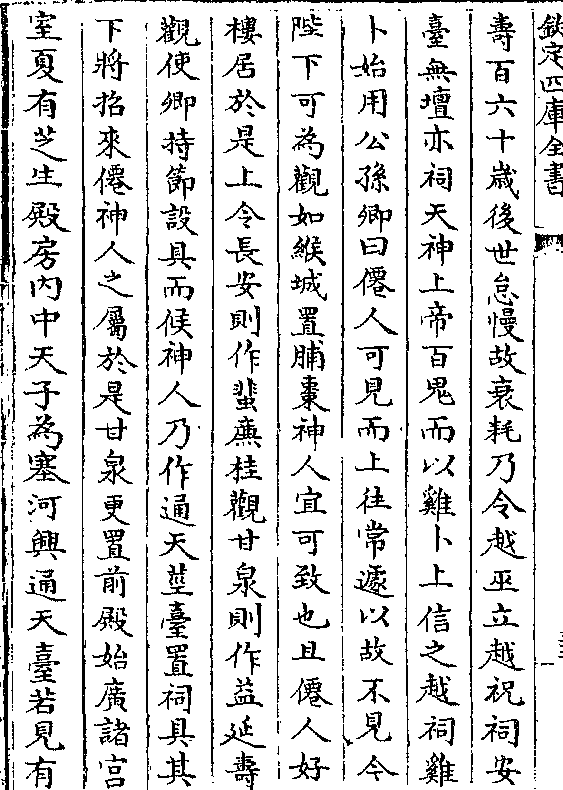 欽定四庫全書
壽百六十歲後世怠慢故衰耗乃令越巫立越祝祠安
臺無壇亦祠天神上帝百鬼而以雞卜上信之越祠雞
卜始用公孫卿曰僊人可見而上往常遽以故不見今
陛下可為觀如緱城置脯棗神人宜可致也且僊人好
樓居於是上令長安則作蜚廉桂觀甘泉則作益延壽
觀使卿持節設具而候神人乃作通天莖臺置祠具其
下將招來僊神人之屬於是甘泉更置前殿始廣諸宮
室夏有芝生殿房内中天子為塞河興通天臺若見有